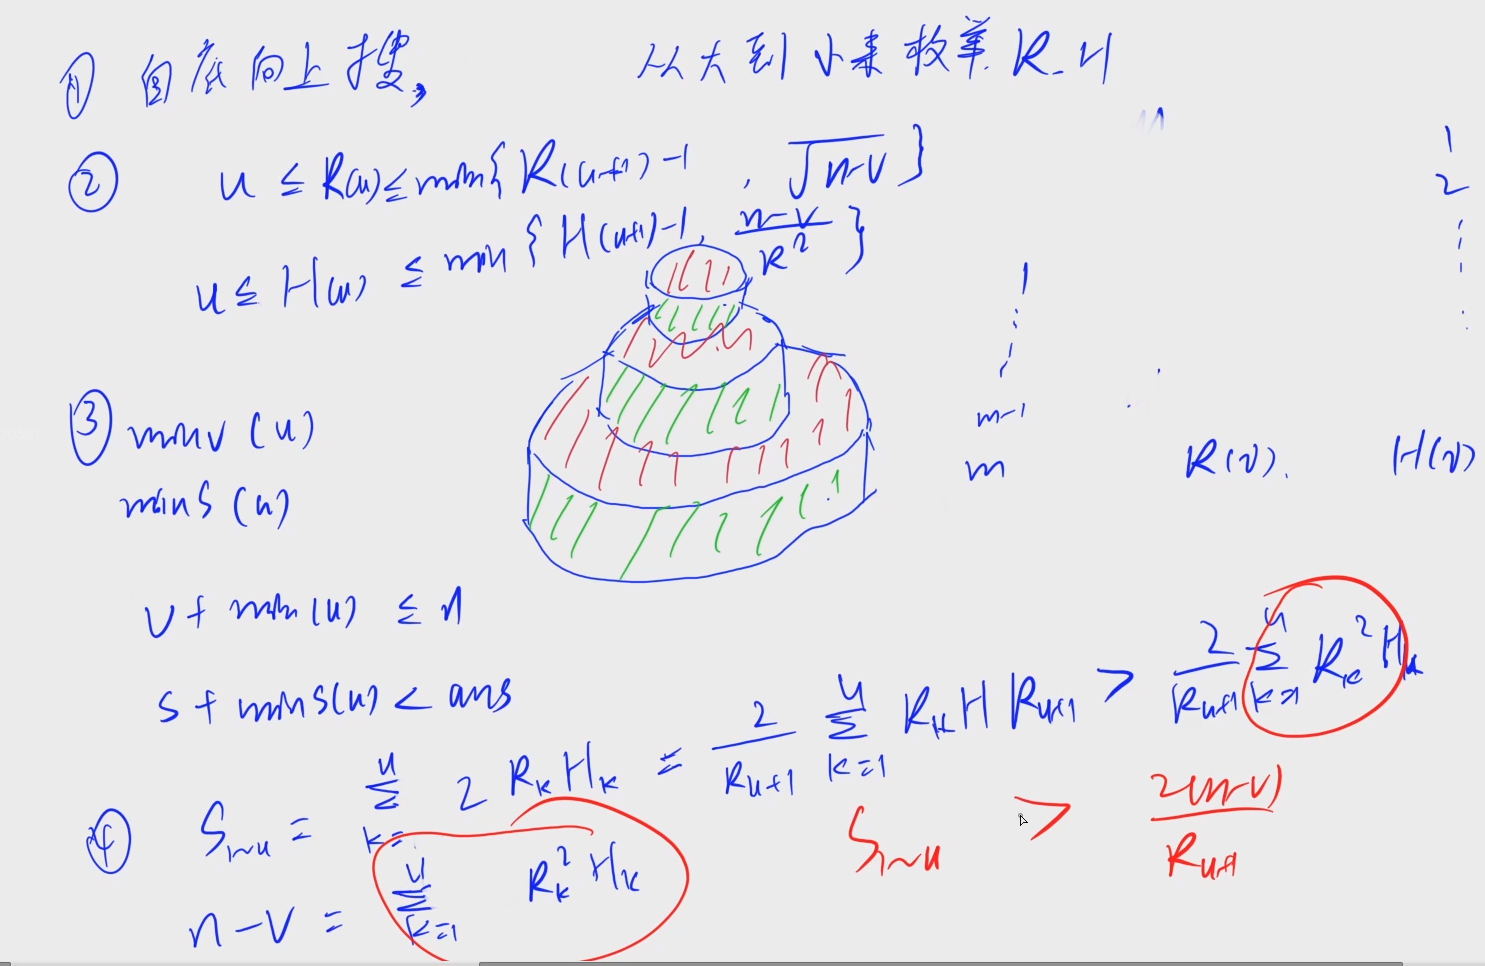 ① 自底向上搜, 从大到小来枚举 R.H
② u ≤ R(u) ≤ min{ R(u+1)-1 , √n-v }
u ≤ H(u) ≤ min { H(u+1)-1, n-v / R² }
1
2
1
m-1
m R(v). H(v)
③ minv (u)
mins (u)
v + min(u) ≤ n
s + mins(u) < ans
④ S₁~u = Σ u k= 2 Rk Hk = 2 / Ru+1 Σ u k=1 Rk H Ru+1 > 2 / Ru+1 Σ u k=1 Rk² Hk
n-v = Σ u k=1 Rk² Hk
S₁~u > 2(n-v) / Ru+1